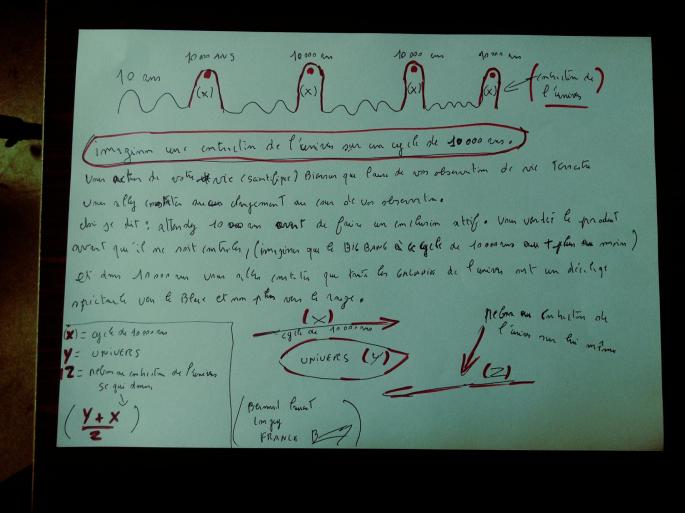 10000 ans 10000 ans 10000 ans 10000 ans
10 ans
(X) (X) (X) (X)
(contraction de
l'univers)
imaginon une contraction de l'univers sur un cycle de 10 000 ans.
de votre vie (scientifique) que de vos observation de vie Terrestre
vous allez aucun changement au cour de vos observation.
je dit : attendez 10 000 ans avant de faire un conclusion atif. Vous vendez le produit
avant qu'il ne soit controler, (imaginez que le BIG BANG à le cycle de 10000 ans ou + plus ou moins)
et dans 10000 ans vous allez constater que toute les GALAXIES de l'univers ont un décalage
spectrale vers le Bleue et non plus vers le rouge.
(X)
cycle de 10000 ans
UNIVERS (Y)
Retour ou contraction de
l'univers sur lui même
(Z)
(X) = cycle de 10000 ans
Y = UNIVERS
Z = retour ou contraction de l'univers
se qui donne
(Y + X
Z)
(Bernard
FRANCE)